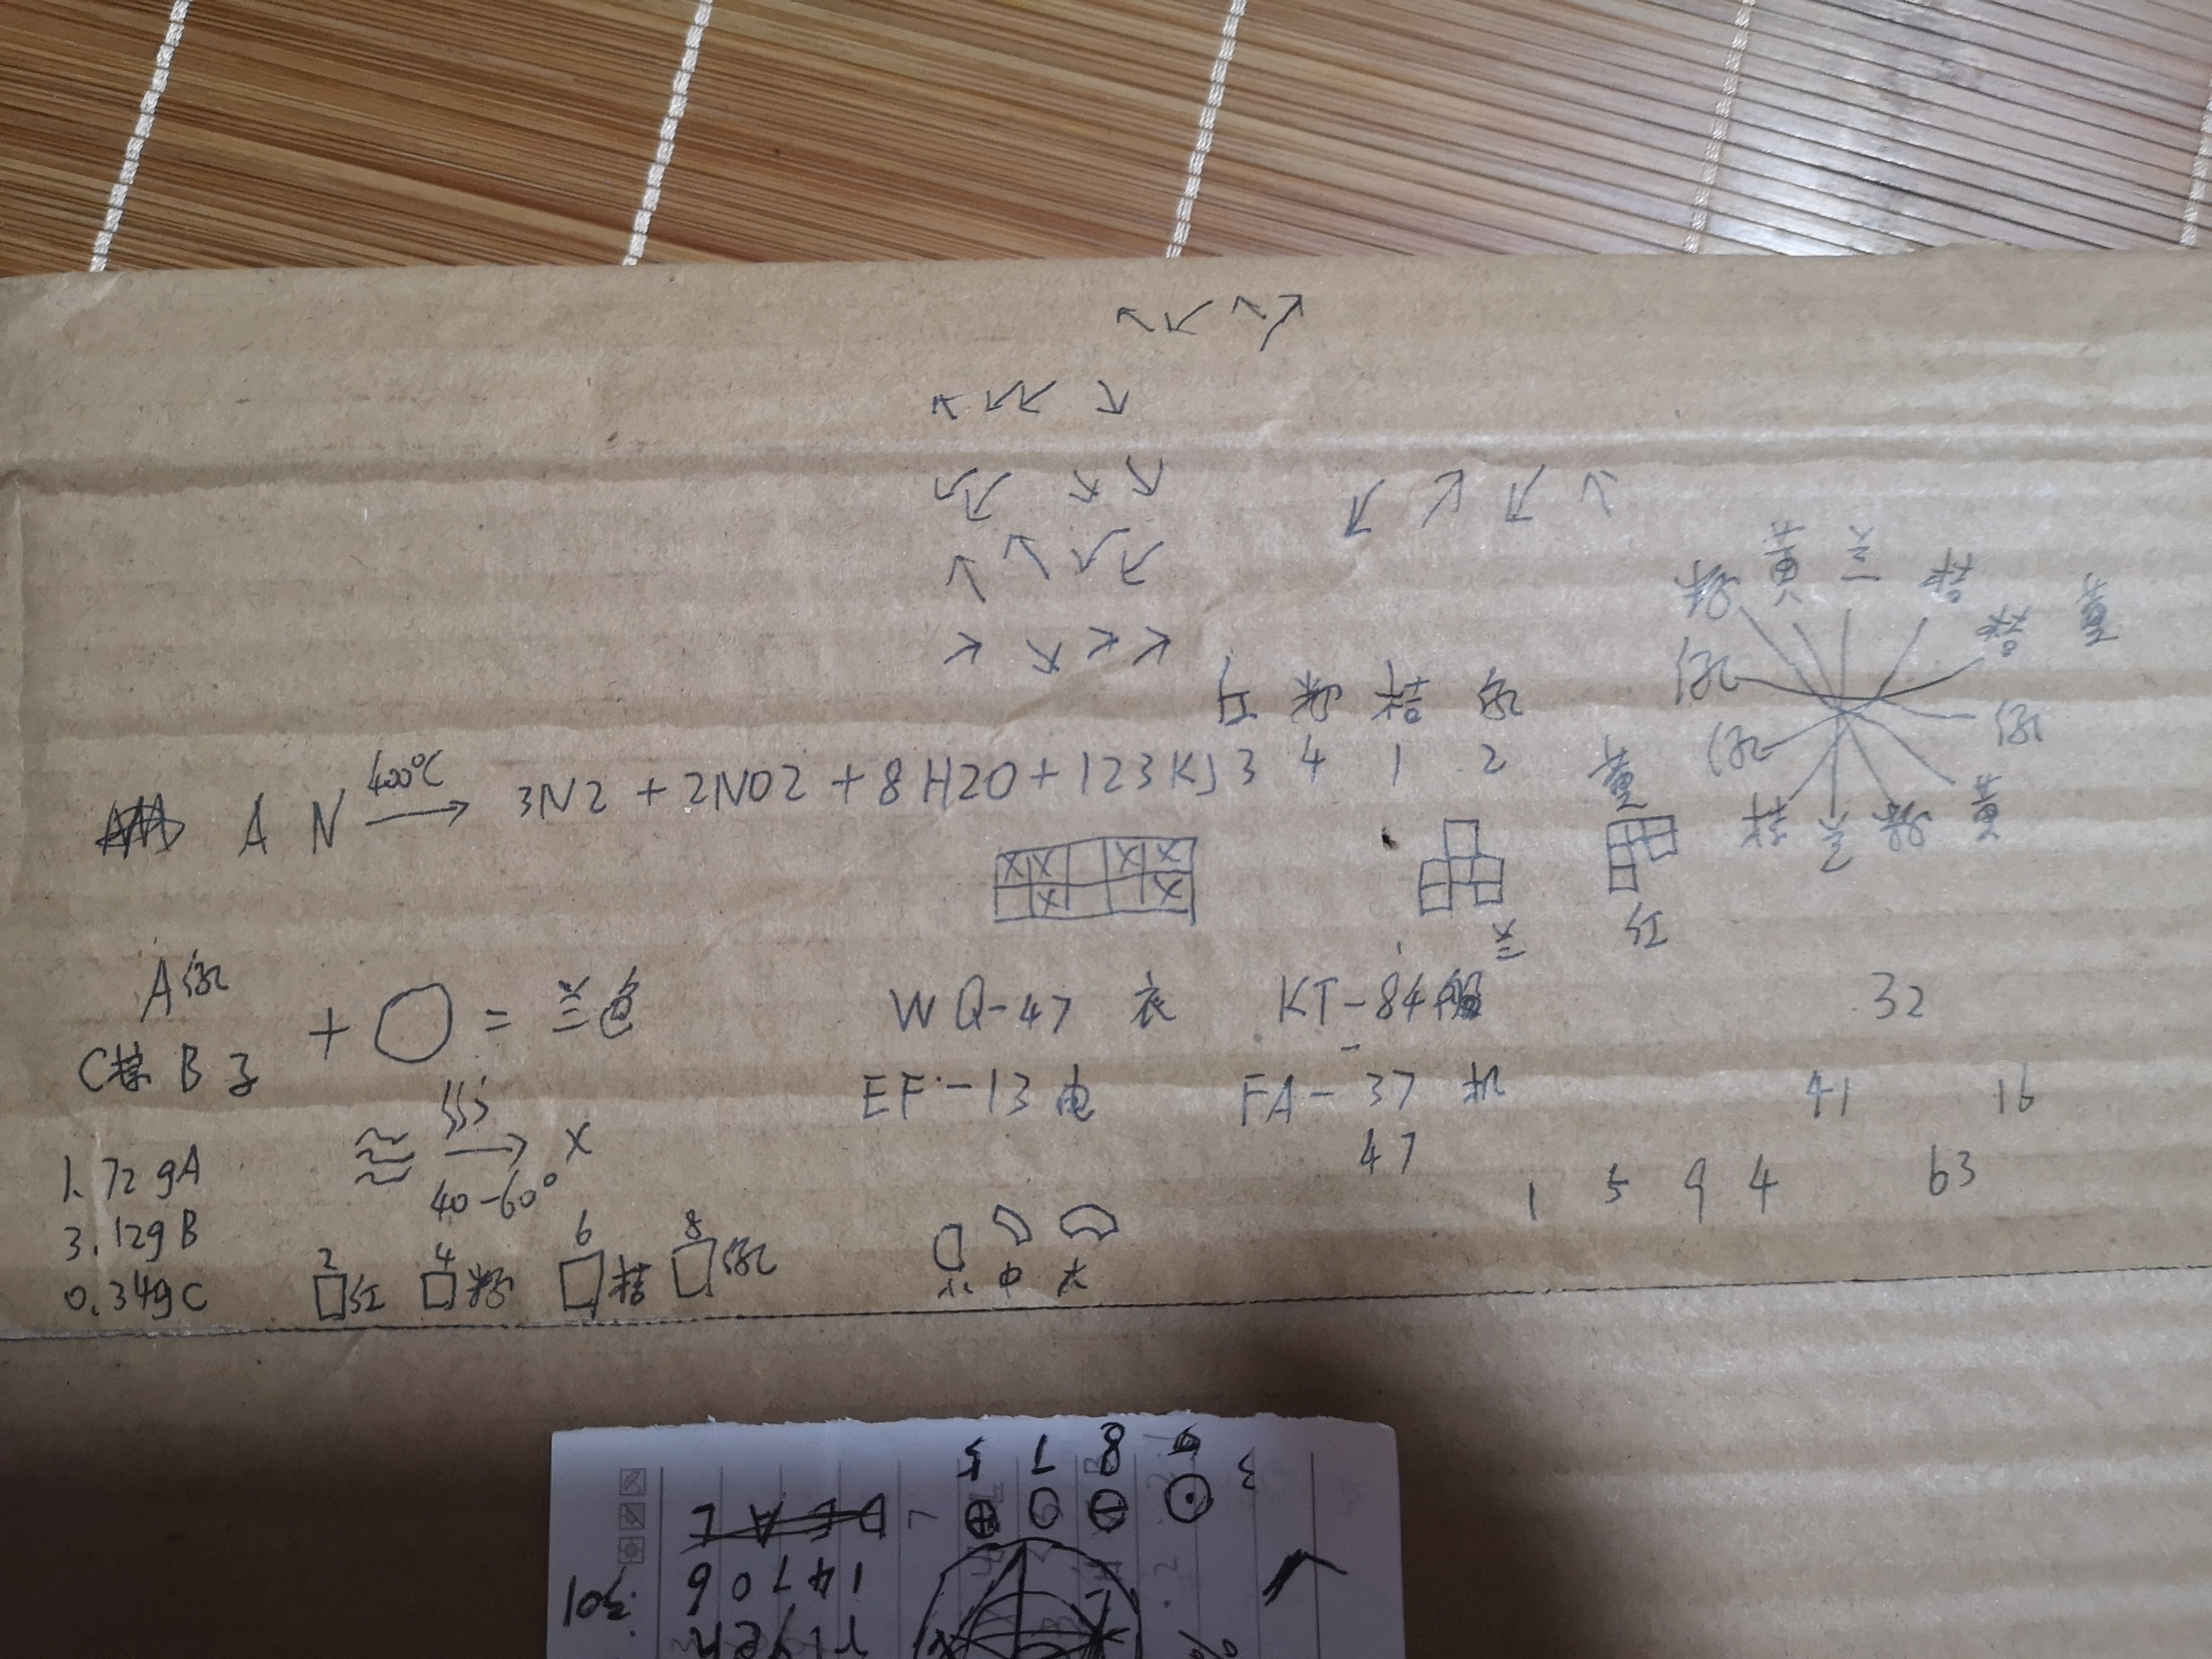 红 粉 桔 绿
3 4 1 2
粉 黄 兰 桔
绿 桔 董
绿 绿
桔 兰 粉 黄
A N 400℃ → 3N2 + 2NO2 + 8H2O + 123KJ
董
红
兰
A绿
C棕 B 子 + ○ = 兰色
WQ-47 衣 KT-84服
EF-13 电 FA-37 机
47
32
41 16
63
1 5 9 4
40-60° X
1.72gA
3.12gB
0.34gC
2 4 6 8
红 粉 桔 绿
小 中 大
5 7 8
3
D E A L
1 4 7 0 6
301